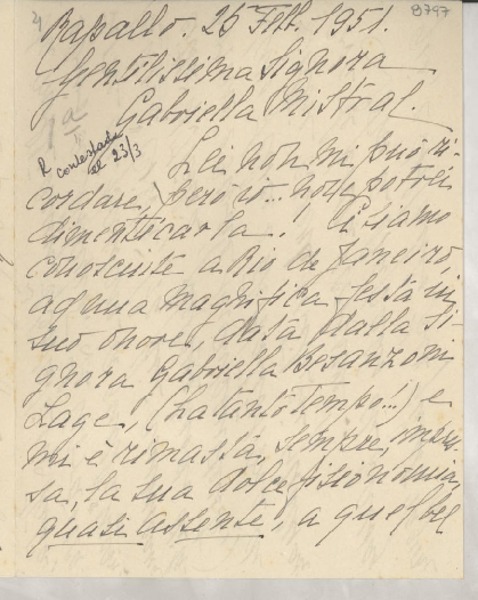 8797
Rapallo. 25 Feb. 1951.
Gentilissima Signora
Gabriella Mistral.
1a
R contestada
el 23/3
Lei non mi può ri-
cordare, però io... non potrei
dimenticarla! Ci siamo
conosciute a Rio de Janeiro,
ad una magnifica festa in
suo onore, data dalla Si-
gnora Gabriella Besanzoni
Lage, (ha tanto tempo!..) e
mi è rimasta, sempre, impres-
sa, la sua dolce fisionomia,
quasi assente, a quel bel